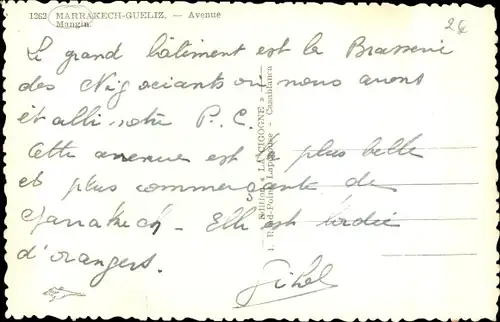 1262 MARRAKECH-GUELIZ. — Avenue
Mangin.
26
Le grand bâtiment est la Brasserie
des Négociants où nous avons
établi notre P.C.
Cette avenue est la plus belle
et plus commerçante de
Marrakech. Elle est bordée
d'orangers.
Edition « LA CIGOGNE »
1, Rond-Point Lapérouse - Casablanca